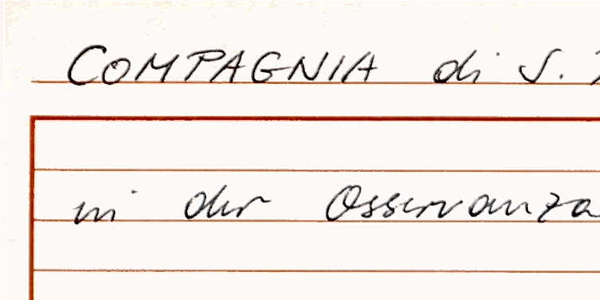 COMPAGNIA di S.
in der Osservanza